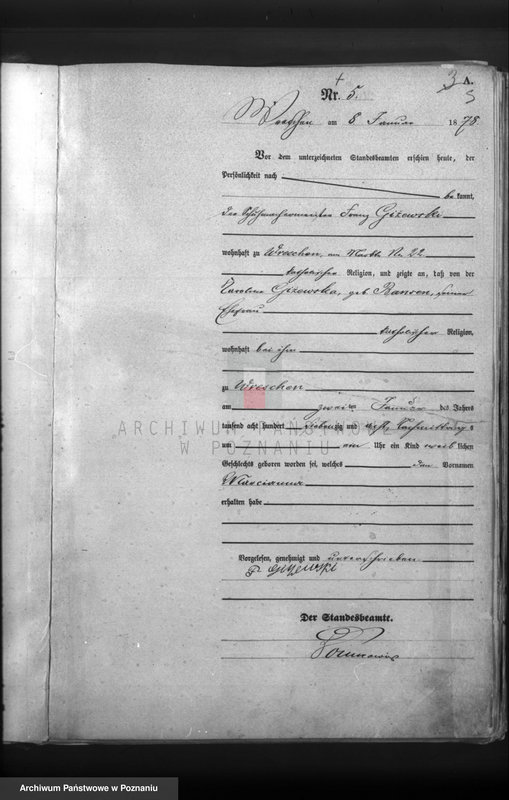 3 A.
5
Nr. 5.
Wreschen am 8 Januar 1878
Vor dem unterzeichneten Standesbeamten erschien heute, der
Persönlichkeit nach
be kannt,
der Schuhmachermeister Franz Giżewski
wohnhaft zu Wreschen, am Markte Nr. 22
katholischer Religion, und zeigte an, daß von der
Giżewska, geb. seiner
Ehefrau
katholischer Religion,
wohnhaft bei ihm
zu Wreschen
am zwei ten Januar des Jahres
tausend acht hundert siebenzig und acht, Nachmittags
um ein Uhr ein Kind weib lichen
Geschlechts geboren worden sei, welches den Vornamen
Marcianna
erhalten habe
Vorgelesen, genehmigt und unterschrieben
F. Giżewski
Der Standesbeamte.
ARCHIWUM PAŃSTWOWE
W POZNANIU
Archiwum Państwowe w Poznaniu